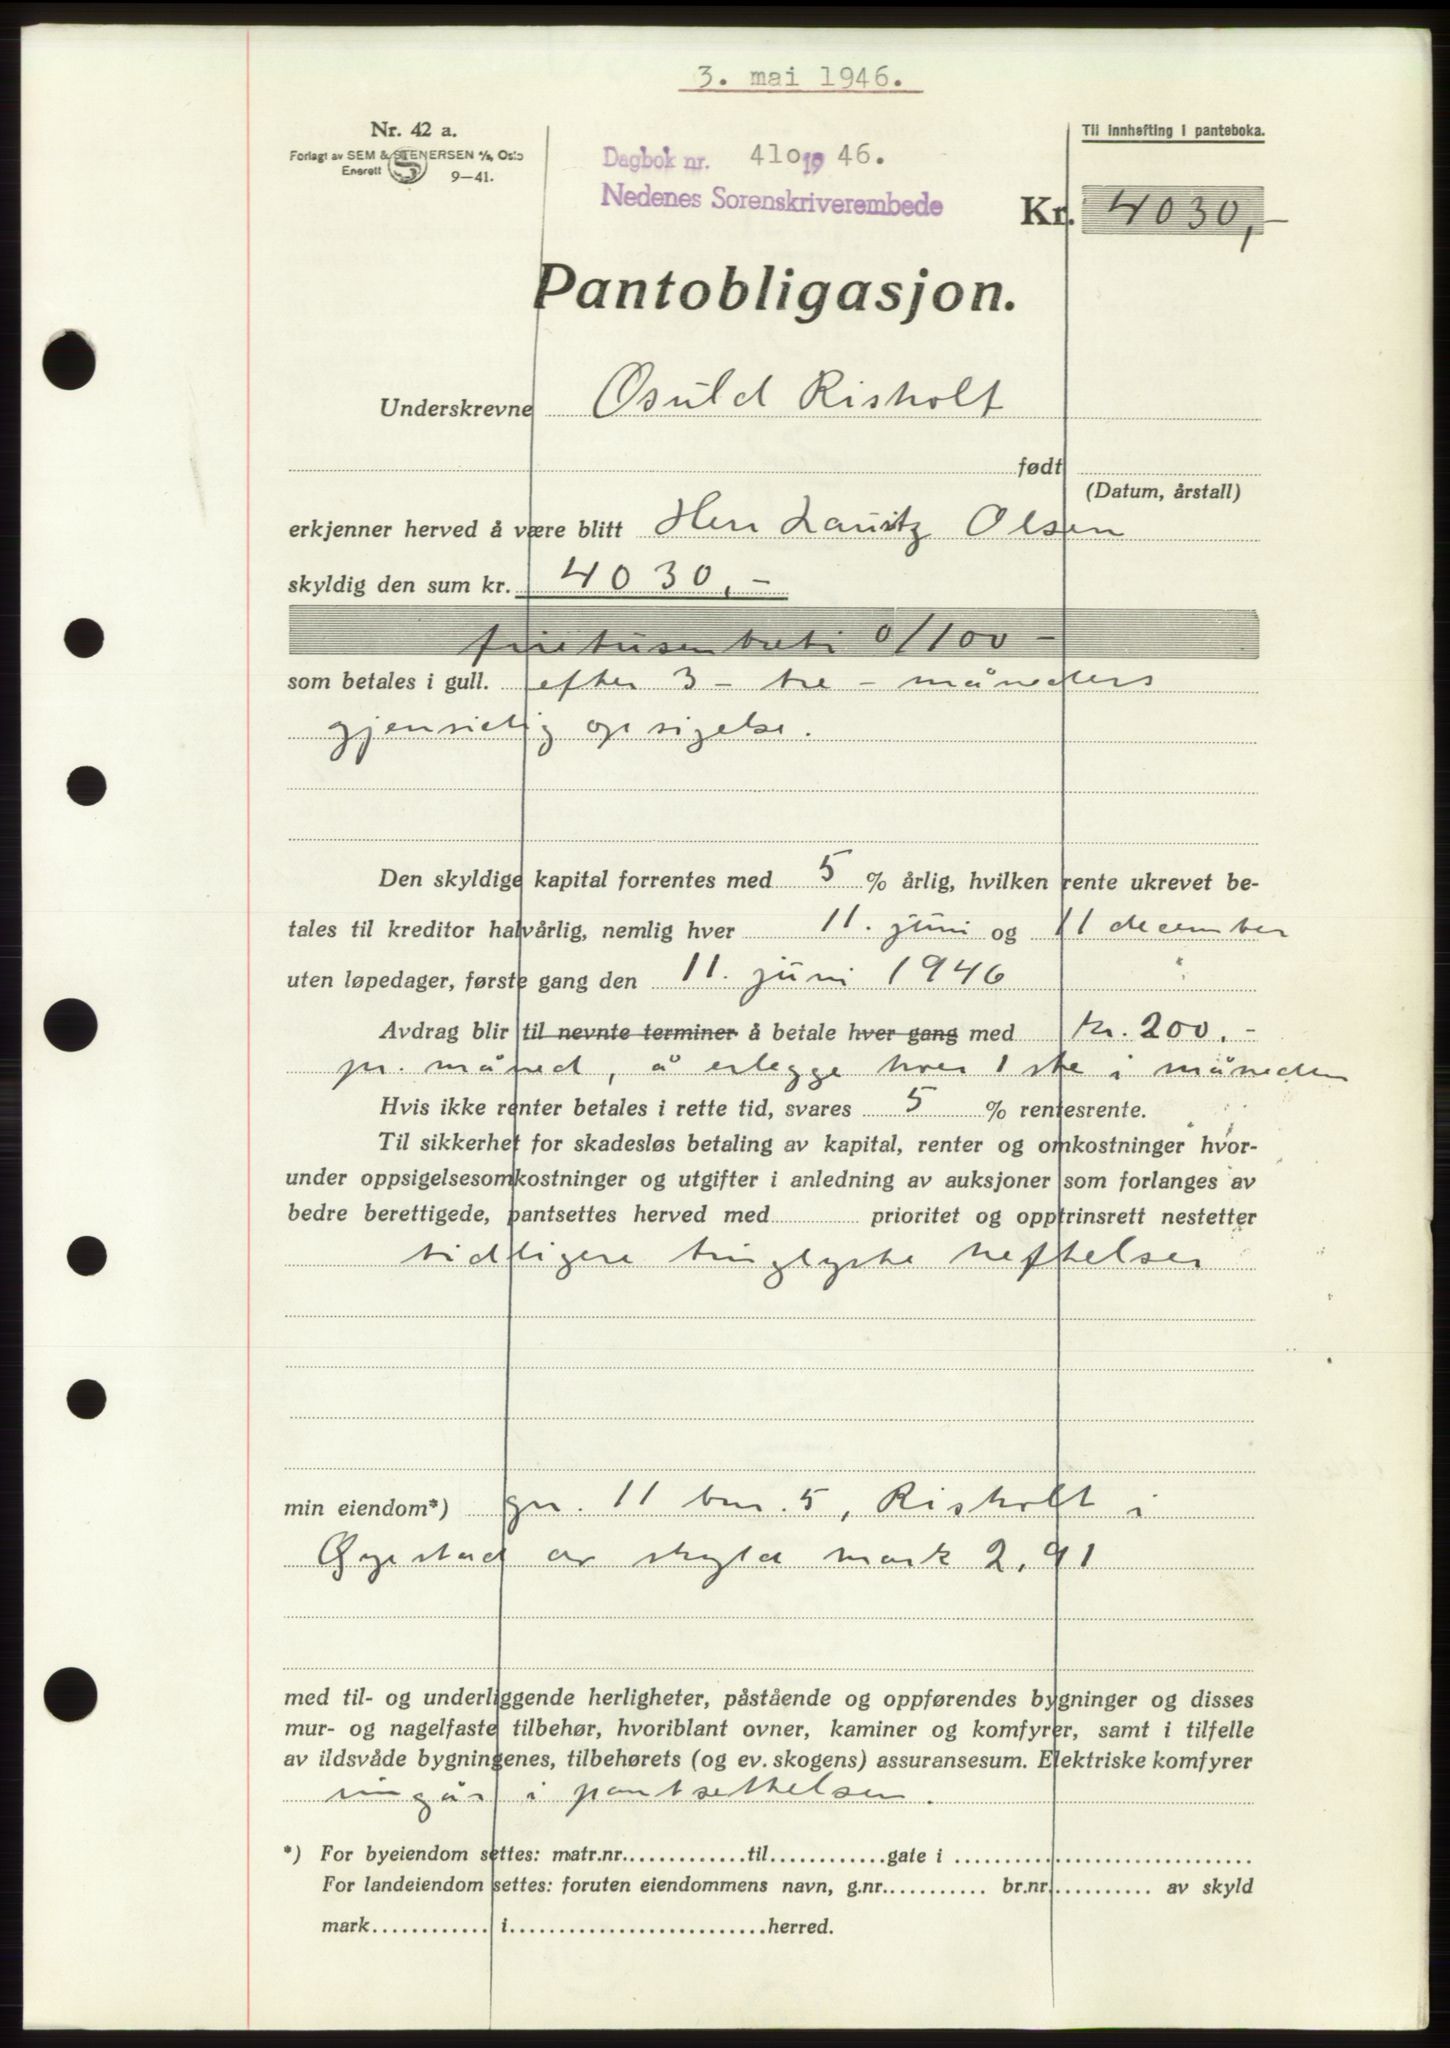 3. mai 1946.
Nr. 42 a.
Forlagt av SEM & STENERSEN A/S, Oslo
Enerett 9—41.
Til innhefting i panteboka.
Dagbok nr. 410 19 46.
Nedenes Sorenskriverembede
Kr. 4030,-
Pantobligasjon.
Underskrevne Osuld Risholt
født
(Datum, årstall)
erkjenner herved å være blitt Herr Lauritz Olsen
skyldig den sum kr. 4030,-
firetusentreti 0/100 -
som betales i gull. efter 3 - tre - måneders
gjensidig opsigelse.
Den skyldige kapital forrentes med 5 % årlig, hvilken rente ukrevet be-
tales til kreditor halvårlig, nemlig hver 11. juni og 11 december
uten løpedager, første gang den 11. juni 1946
Avdrag blir til nevnte terminer å betale hver gang med kr. 200.-
pr. måned, å erlegge hver 1 ste i måneden
Hvis ikke renter betales i rette tid, svares 5 % rentesrente.
Til sikkerhet for skadesløs betaling av kapital, renter og omkostninger hvor-
under oppsigelsesomkostninger og utgifter i anledning av auksjoner som forlanges av
bedre berettigede, pantsettes herved med prioritet og opptrinsrett nestetter
tidligere tinglyste heftelser
min eiendom*) gnr. 11 bnr. 5, Risholt i
Øyestad av skyld mark 2,91
med til- og underliggende herligheter, påstående og oppførendes bygninger og disses
mur- og nagelfaste tilbehør, hvoriblant ovner, kaminer og komfyrer, samt i tilfelle
av ildsvåde bygningenes, tilbehørets (og ev. skogens) assuransesum. Elektriske komfyrer
ingår i pantsettelsen.
*) For byeiendom settes: matr.nr.............til............gate i ..............................
For landeiendom settes: foruten eiendommens navn, g.nr........... br.nr........... av skyld
mark............ i..........................herred.